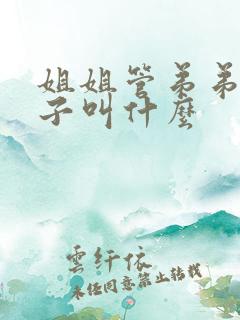 姐姐管弟弟
子叫什麼
雲纤依
未经同意禁止转载